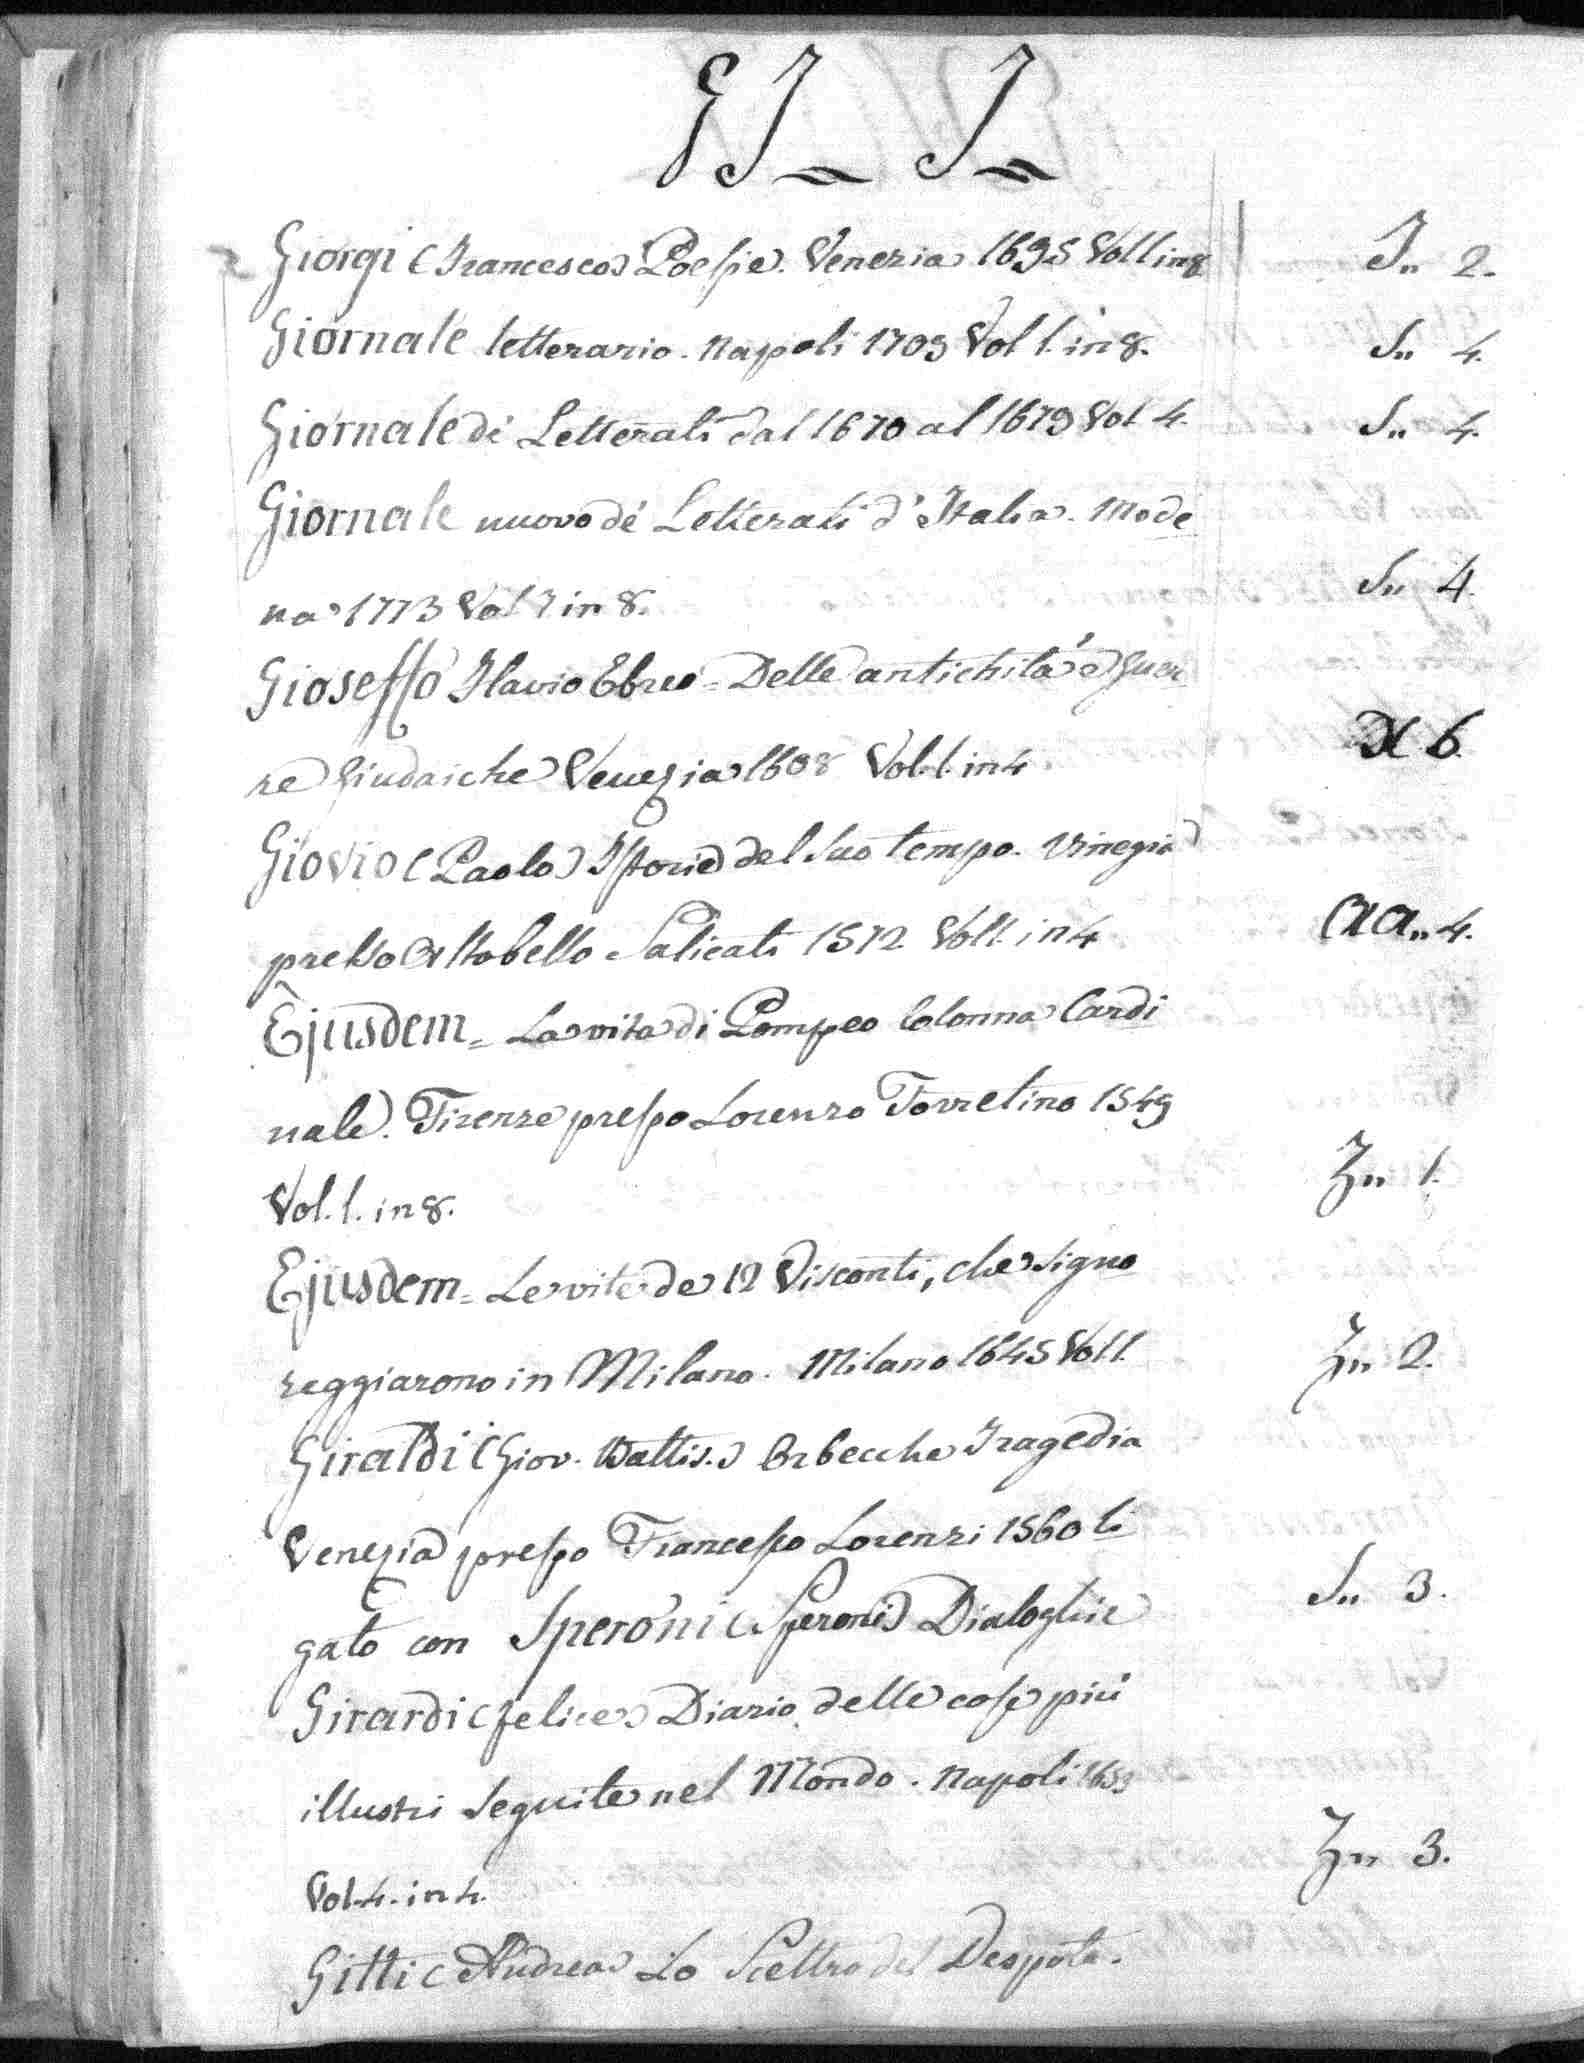 GI_ I_
Giorgi (Francesco) Poesie. Venezia 1695 Vol 1 in 8 J,, 2.
Giornale letterario. Napoli 1709 Vol 1. in 8. S,, 4.
Giornale de' Letterati dal 1670 al 1679 Vol 4. S,, 4.
Giornale nuovo de' Letterati d'Italia. Mode
na 1773 Vol in 8. S,, 4.
Gioseffo Flavio Ebreo = Delle antichità e Guer
re Giudaiche Venezia 1608 Vol. 1. in 4 X 6.
Giovio (Paolo) Istorie del suo tempo. Vinegia
presso Altobello Salicati 1572 Vol 1. in 4 AA,, 4.
Ejusdem = La vita di Pompeo Colonna Cardi
nale. Firenze presso Lorenzo Torretino 1549
Vol. 1. in 8. Z,, 1.
Ejusdem = Le vite de 12 Visconti, che signo
reggiarono in Milano. Milano 1645 Vol 1. Z,, 2.
Giraldi (Giov. Battis.) Orbecche Tragedia
Venezia presso Francesco Lorenzi 1560 li
gato con Speroni (Speroni) Dialoghi S,, 3.
Girardi (Felice) Diario delle cose più
illustri seguite nel Mondo. Napoli 1653
Vol. 4. in 4. Z,, 3.
Gitti (Andrea) Lo Scettro del Despota.